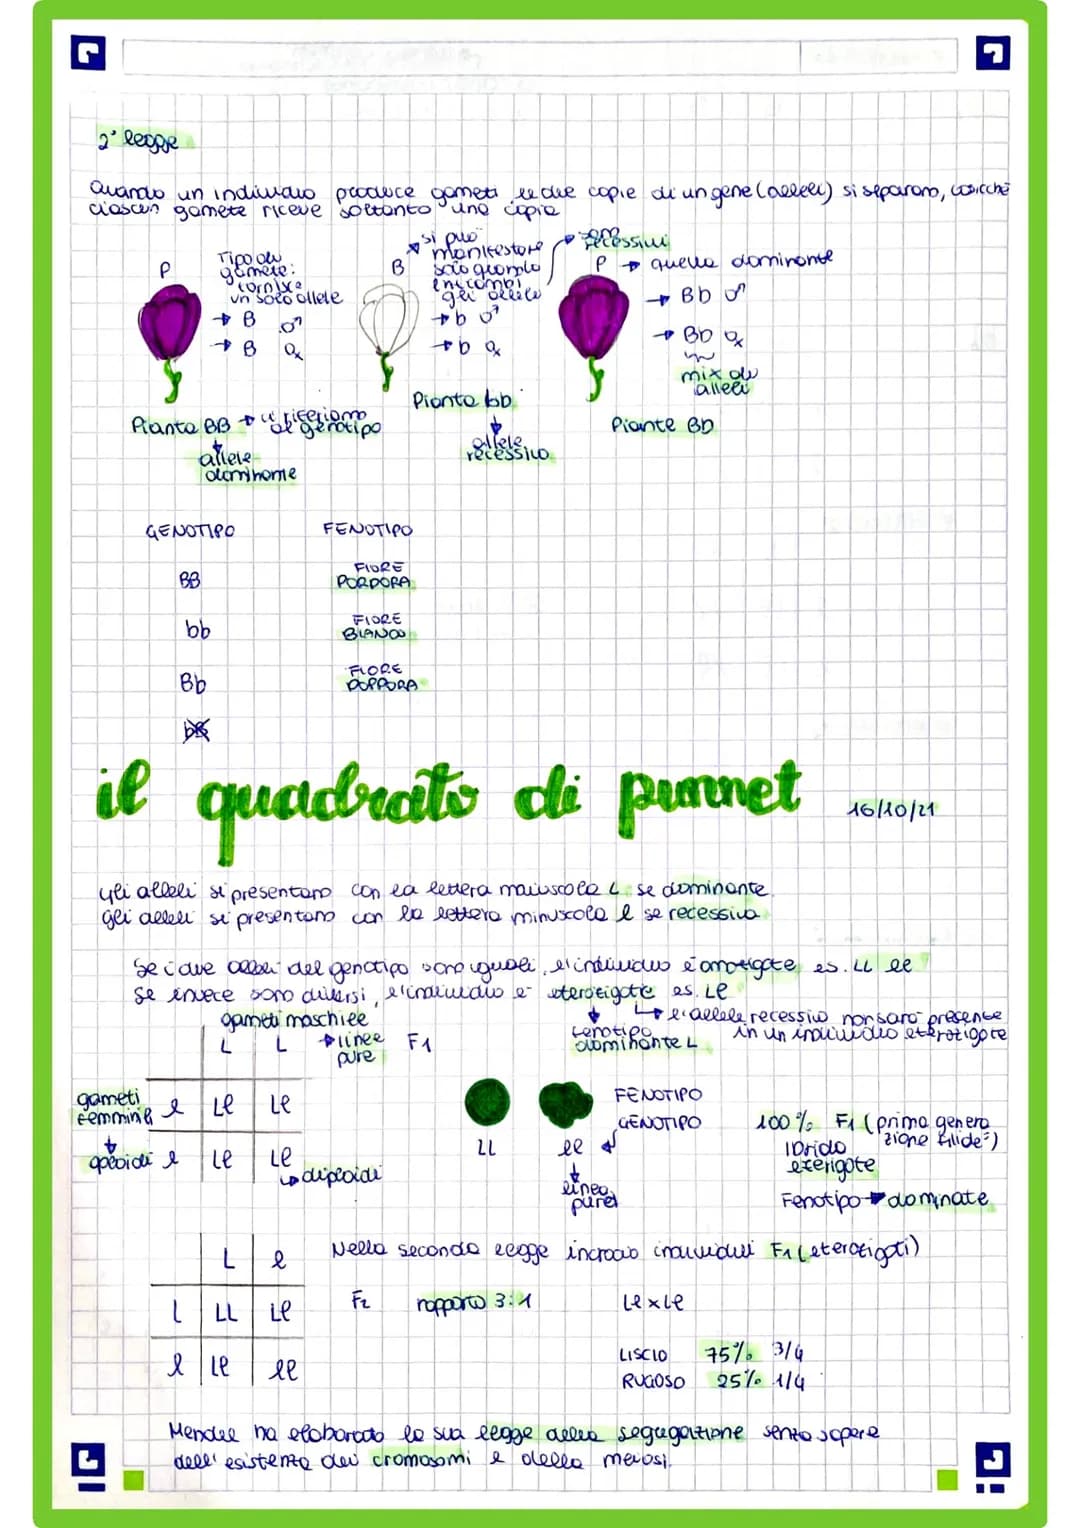 2° legge
Quando un individuo produce gameti le due copie di un gene (alleli) si separano, cosicchè
ciascun gamete riceve soltanto una copia
P
Tipo di
gamete:
fornisce
un solo allele
→ B ♂
→ B ♀
Pianta BB → ci riferiamo
al genotipo
allele
dominome
B
si può
manifestare
solo quando
entrambi
gli alleli
→ b ♂
→ b ♀
Pianta bb
allele
recessivo
sono
recessivi
P → quello dominante
→ Bb ♂
→ Bb ♀
mix di
alleli
Piante Bb
GENOTIPO FENOTIPO
BB FIORE
PORPORA
bb FIORE
BIANCO
Bb FIORE
PORPORA
bB
il quadrato di punnet 16/10/21
gli alleli si presentano con la lettera maiuscola L se dominante.
gli alleli si presentano con la lettera minuscola l se recessiva
Se i due alleli del genotipo sono uguali, l'individuo è omozigote, es. LL ll
Se invece sono diversi, l'individuo è eterozigote es. Ll
→ l'allele recessivo non sarà presente
in un individuo eterozigote
fenotipo
dominante L
gameti maschili
L L → linee
pure F1
gameti
femminili l Ll Ll
aploidi l Ll Ll
→ diploidi
FENOTIPO
LL ll GENOTIPO
linea
pura
100% F1 (prima genera
zione filide)
Ibrido
eterigote
Fenotipo → dominate
L l
L LL Ll
l Ll ll
Nella seconda legge incrocio individui F1 (eterozigoti)
F2 rapporto 3:1 Ll x Ll
LISCIO 75% 3/4
RUGOSO 25% 1/4
Mendel ha elaborato la sua legge della segregazione senza sapere
dell' esistenza dei cromosomi e della meiosi.